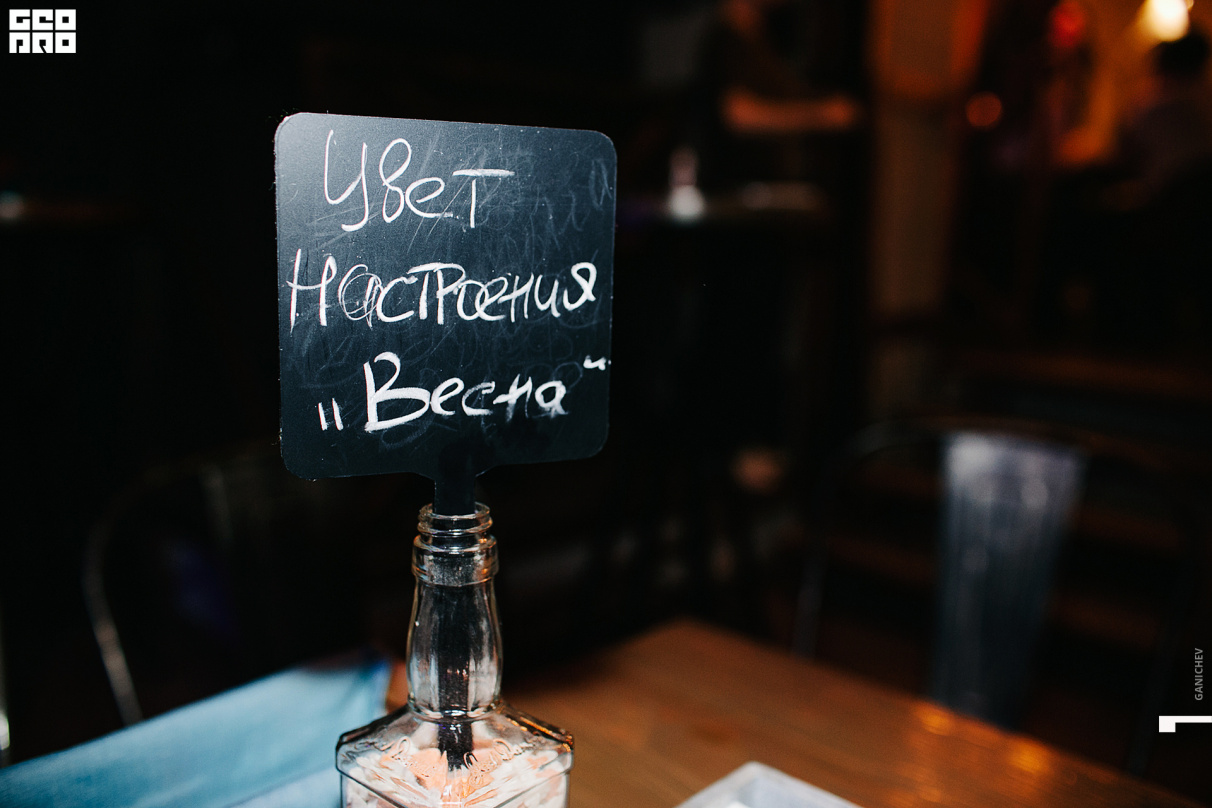 GEO
PRO
Цвет
Настроения
„Весна“
GANICHEV